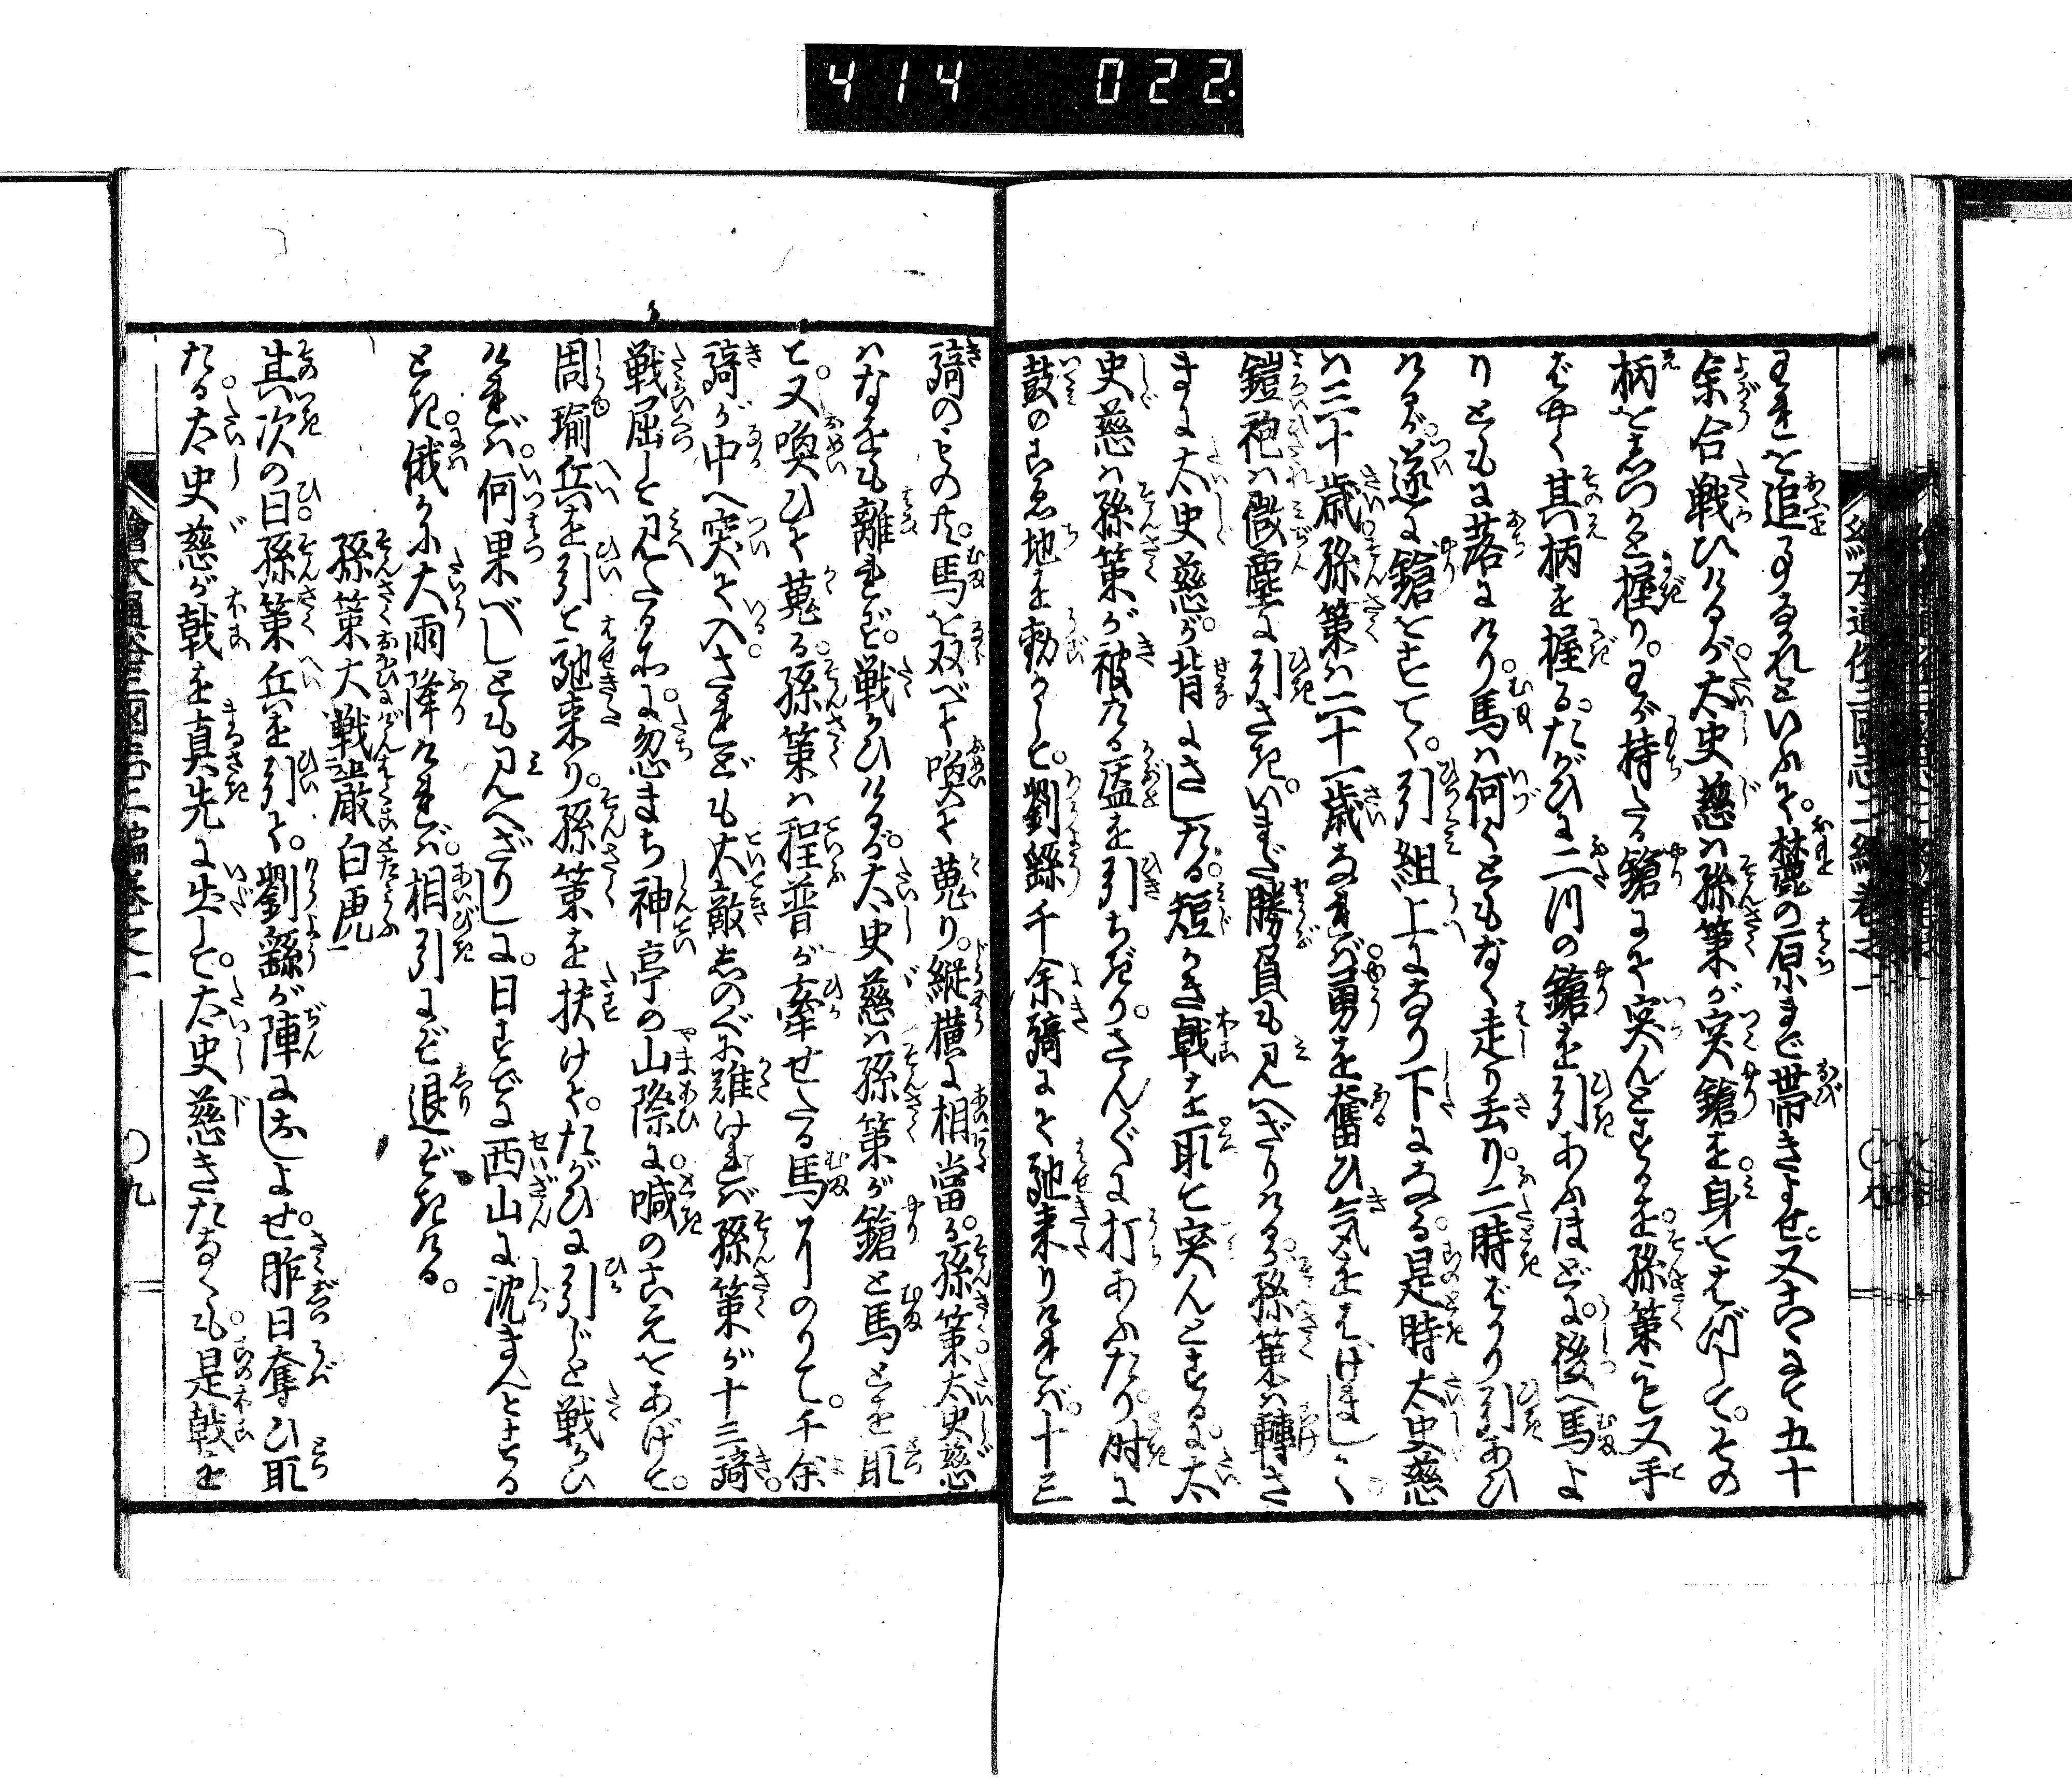 414 022
繪本通俗三國志二編卷之一
われを追ことなかれといふて。麓の原まで帯きよせ。又こゝにて五十
余合戦ひけるが。太史慈は孫策が突鎗を。身をよぢらして。その
柄をしつかと握り。わが持たる鎗にて突んとするを。孫策も又手
ばやく其柄を握る。たがひに二つの鎗を引あふほどに。後へ馬よ
りともに落にけり馬は何くともなく走り去り。二時ばかり引あひ
けるが。遂に鎗をすてて。引組上になり下になる。是時太史慈
は三十歳孫策は二十一歳なれば。勇を奮ひ気をはげまして
鎧袍は微塵に引さき。いまだ勝負も見へざりける。孫策は轉さ
まに太史慈が。背にさしたる。短かき戟を取て突んとするに。太
史慈は孫策が被たる盔を引ちぎり。さんざんに打あふたり。時に
鼓のこゑ地を動かして。劉繇千余騎にて馳来りければ。十三
騎のもの共。馬を双べて喚て蒐り。縦横に相當る。孫策太史慈
はなをも離れず。戦かひける。太史慈は孫策が鎗と馬とを取
て。又喚ひて蒐る。孫策は程普が牽せたる馬にのりて。千余
騎が中へ突て入。されども大敵しのぐに難ければ孫策が十三騎。
戦屈しと見へたる所に。忽まち神亭の山際に。喊のこゑをあげて。
周瑜兵を引て馳来り。孫策を扶けて。たがひに引じと戦かひ
ければ。何果べしとも見へざりしに。日すでに西山に沈まんとする
とき。俄かに大雨降ければ。相引にぞ退ぞきける。
孫策大戦嚴白虎
其次の日。孫策兵を引て。劉繇が陣におしよせ。昨日奪ひ取
たる太史慈が戟を真先に出して。太史慈きたなくも。是戟を
繪本通俗三國志二編卷之一
〇九